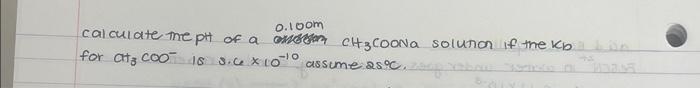 0.100m
calculate the pH of a CH3COONa solution if the Kb
for CH3COO⁻ is 5.6 x 10⁻¹⁰ assume 25°C.